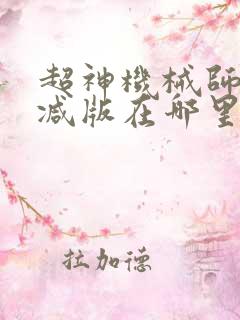 超神機械師
减版在哪里
拉加德